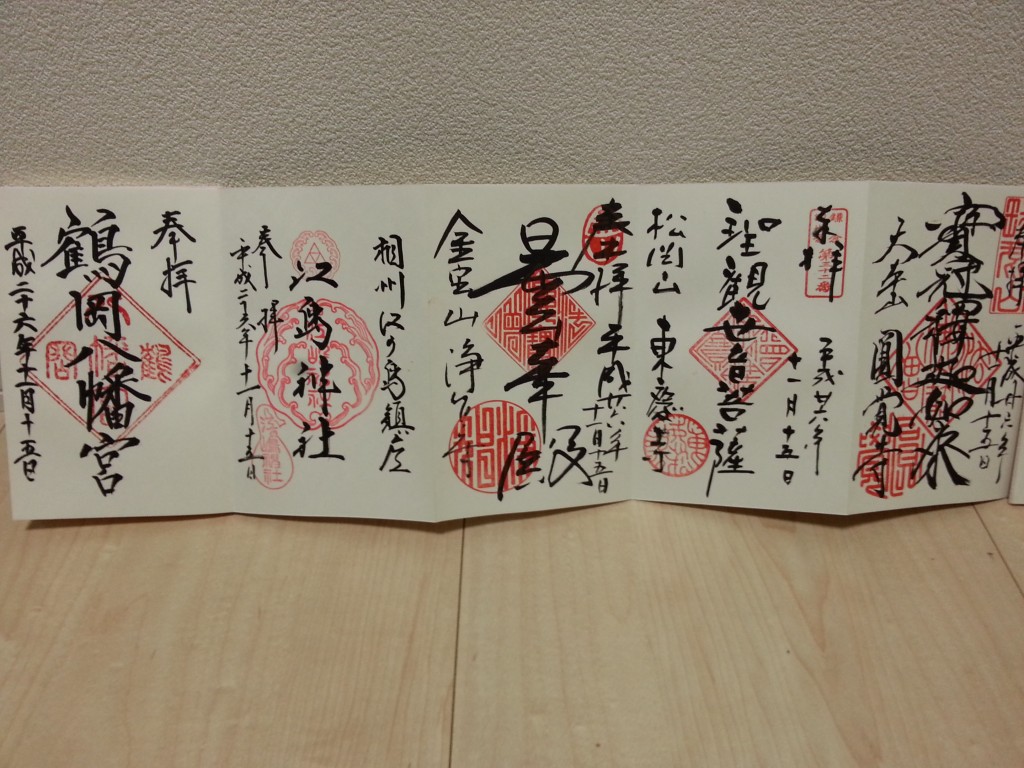 平成廿六年
十一月十五日
寶冠釋迦如来
大本山 圓覚寺
奉拝
平成廿六年
十一月十五日
聖観世音菩薩
松岡山 東慶寺
奉拝 平成廿六年
十一月十五日
曇華殿
金宝山 浄智寺
相州江の島鎮座
江島神社
奉拝
平成二十六年十一月十五日
奉拝
鶴岡八幡宮
平成二十六年十一月十五日